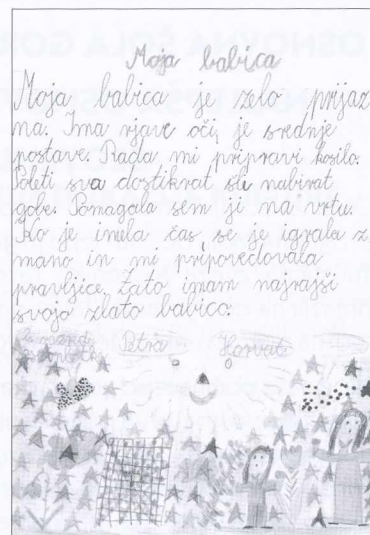 Moja babica
Moja babica je zelo prijaz
na. Ima rjave oči, je srednje
postave. Rada mi pripravi kosilo.
Poleti sva dostikrat šle nabirat
gobe. Pomagala sem ji na vrtu.
Ko je imela čas, se je igrala z
mano in mi pripovedovala
pravljice. Zato imam najrajši
svojo zlato babico.
Petra Horvat